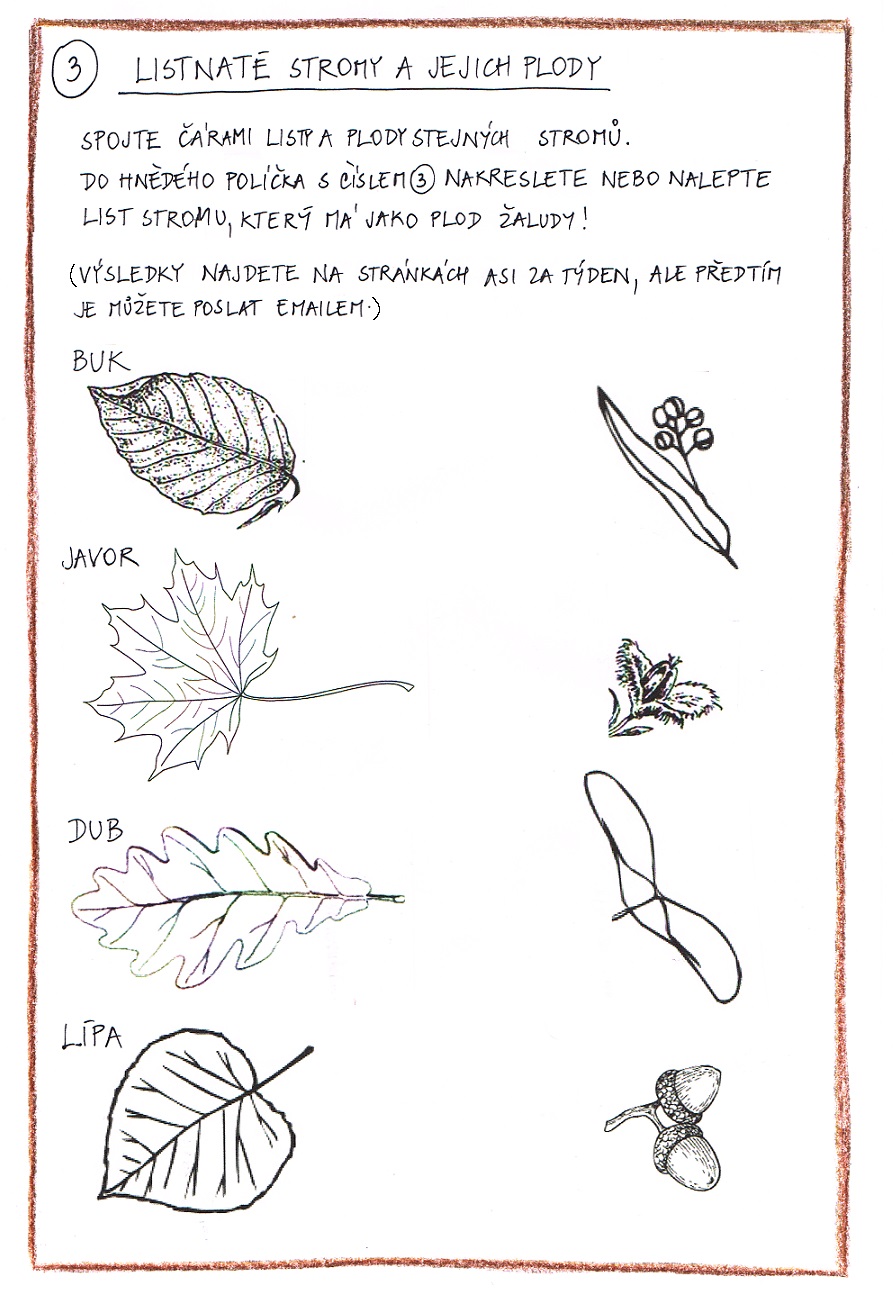 3 LISTNATÉ STROMY A JEJICH PLODY
SPOJTE ČÁRAMI LISTY A PLODY STEJNÝCH STROMŮ.
DO HNĚDÉHO POLÍČKA S ČÍSLEM 3 NAKRESLETE NEBO NALEPTE
LIST STROMU, KTERÝ MÁ JAKO PLOD ŽALUDY!
(VÝSLEDKY NAJDETE NA STRÁNKÁCH ASI ZA TÝDEN, ALE PŘEDTÍM
JE MŮŽETE POSLAT EMAILEM.)
BUK
JAVOR
DUB
LÍPA